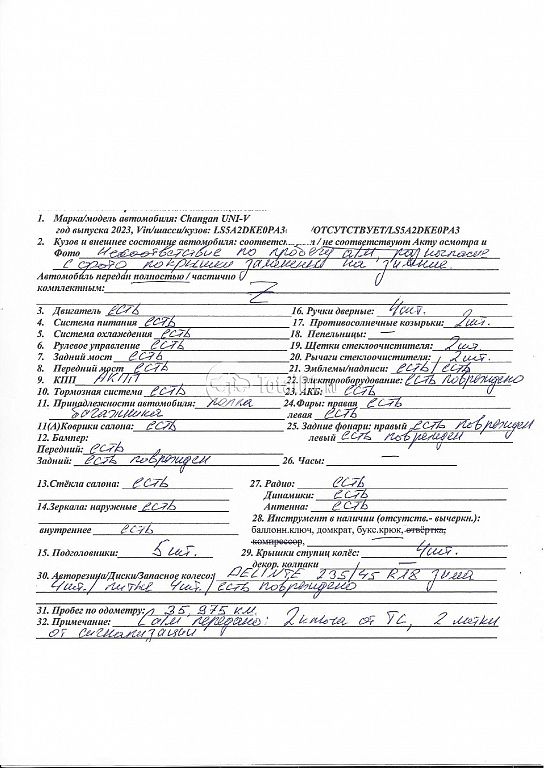 1. Марка/модель автомобиля: Changan UNI-V
год выпуска 2023, Vin/шасси/кузов: LS5A2DKE0PA3 /ОТСУТСТВУЕТ/LS5A2DKE0PA3
2. Кузов и внешнее состояние автомобиля: соответс / не соответствуют Акту осмотра и
Фото Несоответствие по пробегу
с фото покрышки заменены на зимние.
Автомобиль передан полностью / частично
комплектным: Z
3. Двигатель есть
4. Система питания есть
5. Система охлаждения есть
6. Рулевое управление есть
7. Задний мост есть
8. Передний мост есть
9. КПП АКПП
10. Тормозная система есть
11. Принадлежности автомобиля: полка
багажника
11(А)Коврики салона: есть
12. Бампер:
Передний: есть
Задний: есть поврежден
13.Стёкла салона: есть
14.Зеркала: наружные есть
внутреннее есть
15. Подголовники: 5 шт.
16. Ручки дверные: 4 шт.
17. Противосолнечные козырьки: 2 шт.
18. Пепельницы: —
19. Щетки стеклоочистителя: 2 шт.
20. Рычаги стеклоочистителя: 2 шт.
21. Эмблемы/надписи: есть / есть
22. Электрооборудование: есть повреждено
23. АКБ: есть
24.Фары: правая есть
левая есть
25. Задние фонари: правый есть поврежден
левый есть поврежден
26. Часы: —
27. Радио: есть
Динамики: есть
Антенна: есть
28. Инструмент в наличии (отсутств.- вычеркн.):
баллонн.ключ, домкрат, букс.крюк, отвёртка,
компрессор,
29. Крышки ступиц колёс: 4 шт.
декор. колпаки —
30. Авторезина/Диски/Запасное колесо: DELINTE 235/45 R18 зима
4 шт. / литые 4 шт. / есть повреждено
31. Пробег по одометру: 35 975 км.
32. Примечание: передано: 2 ключа от ТС, 2 метки
от сигнализации